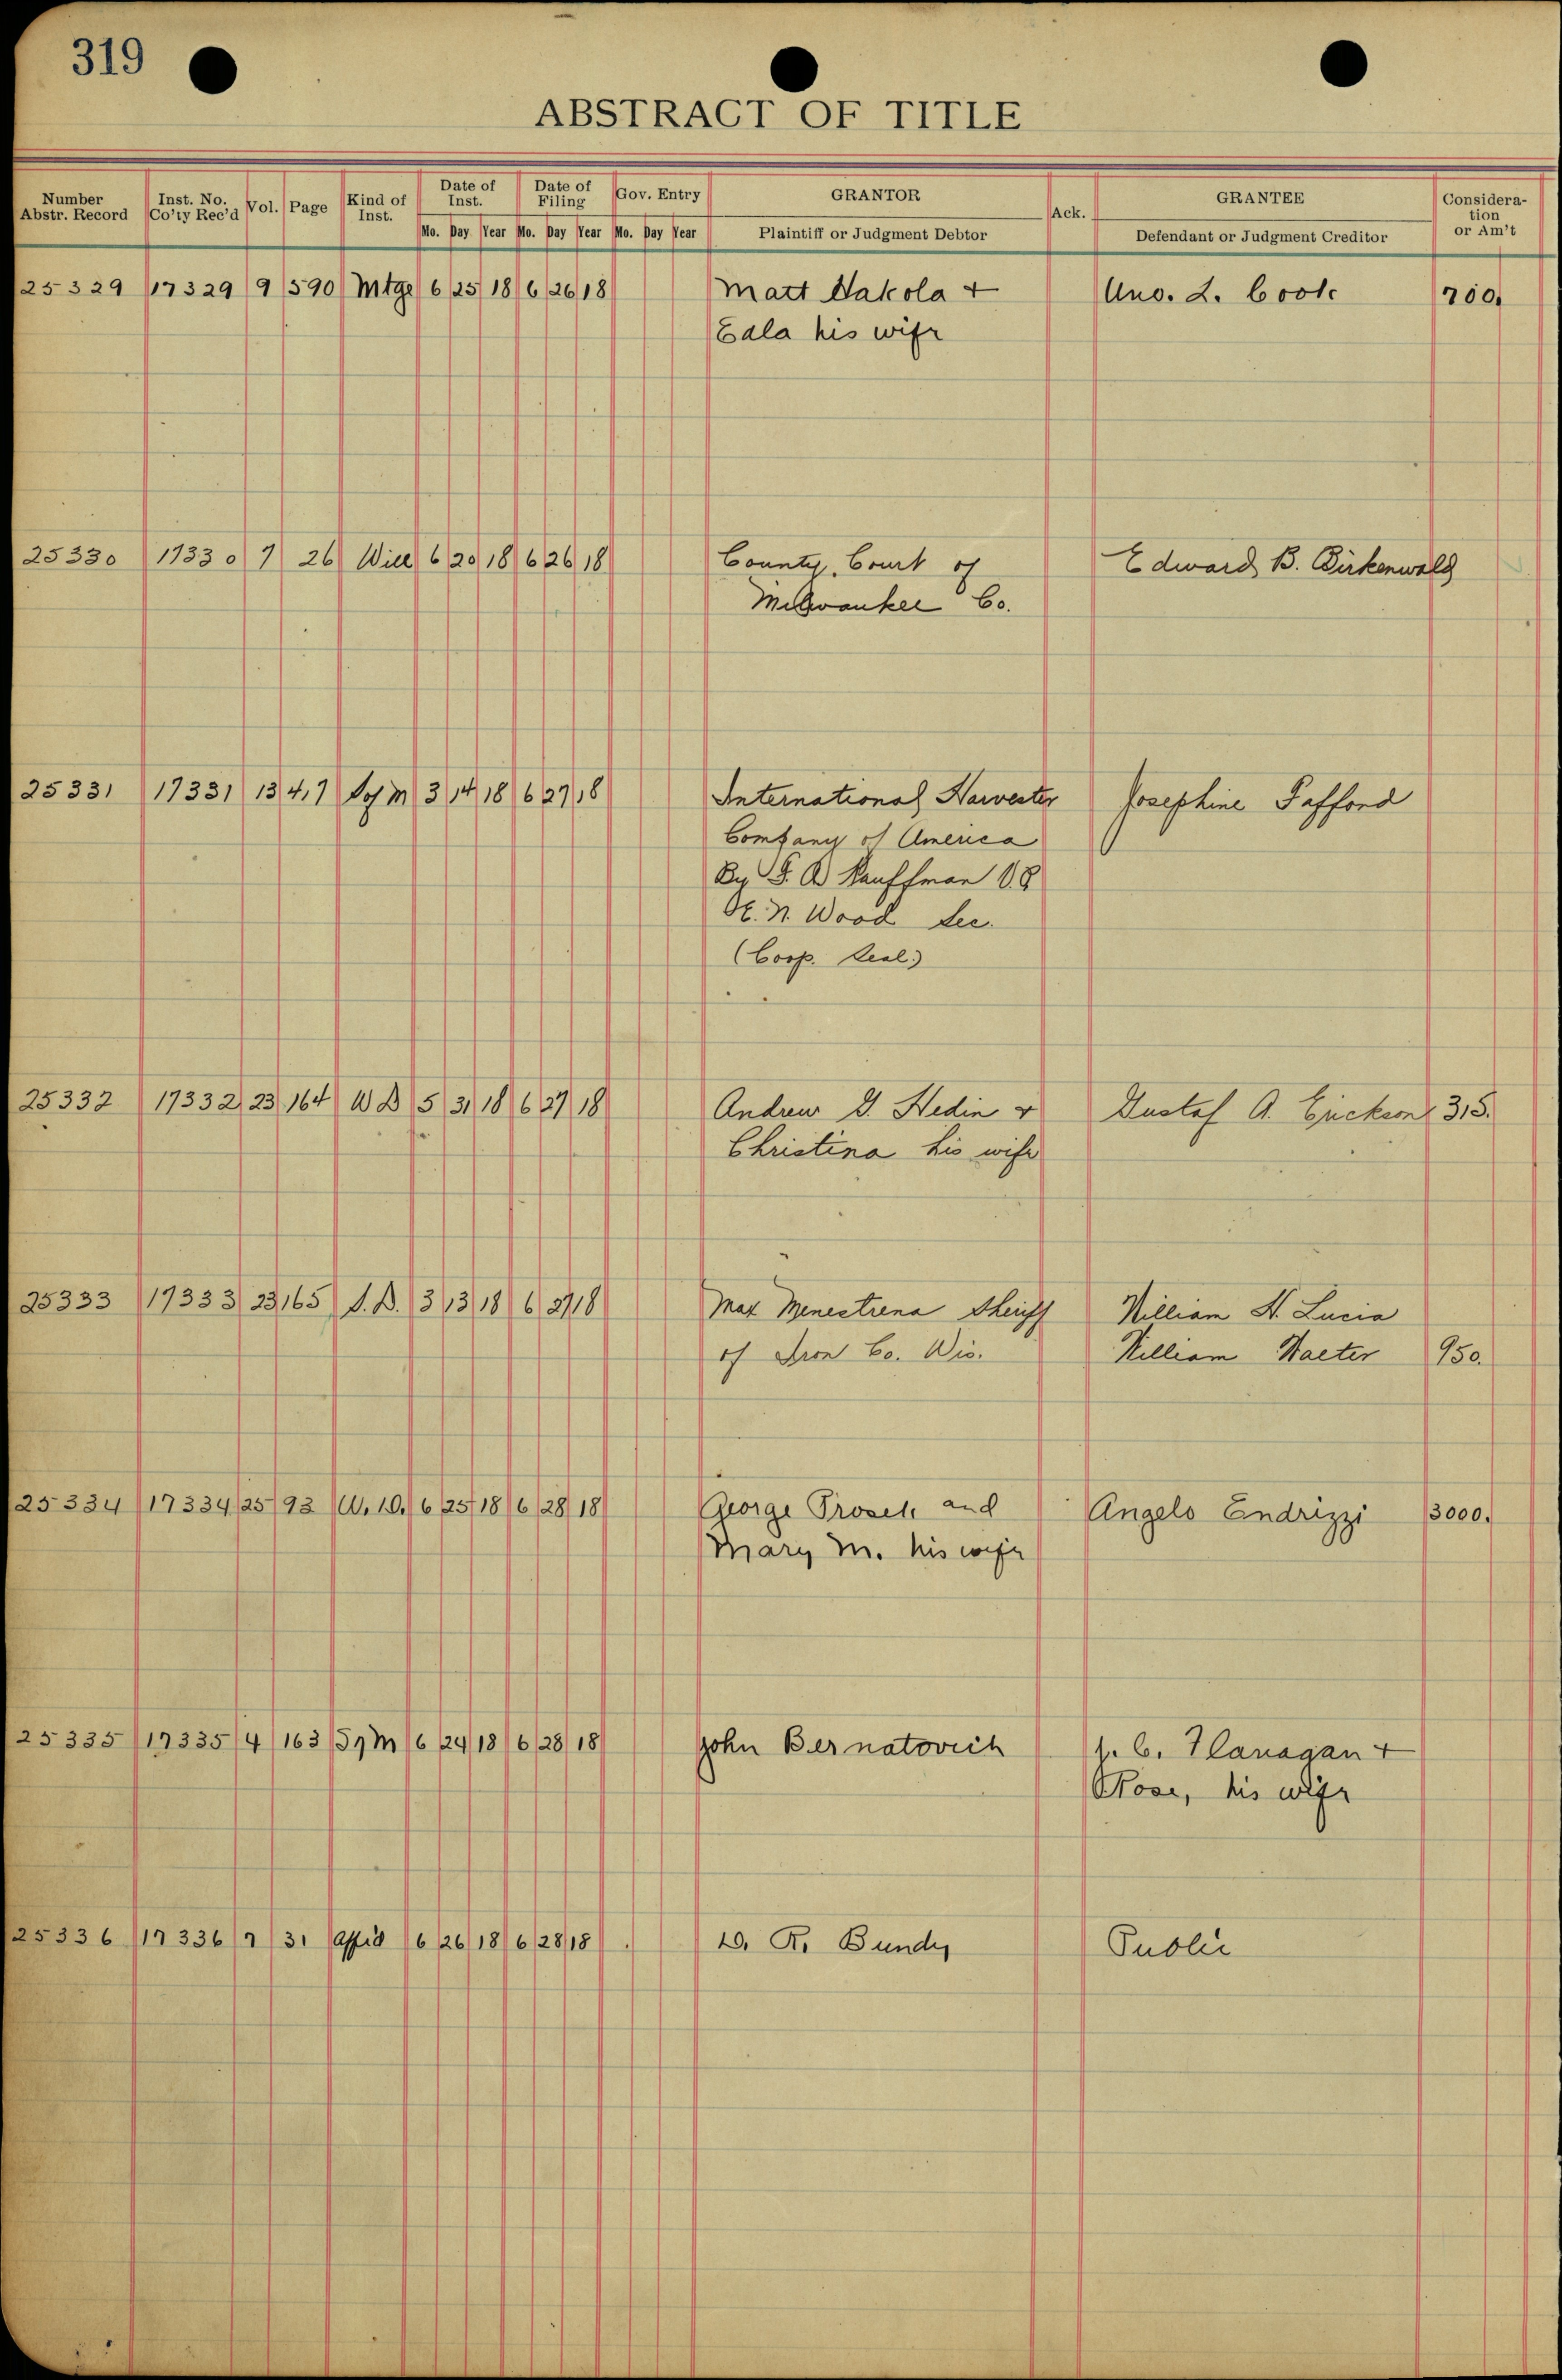 319
ABSTRACT OF TITLE
Number Abstr. Record Inst. No. Co'ty Rec'd Vol. Page Kind of Inst. Date of Inst. Date of Filing Gov. Entry GRANTOR Ack. GRANTEE Consideration or Am't
Mo. Day Year Mo. Day Year Mo. Day Year Plaintiff or Judgment Debtor Defendant or Judgment Creditor
25329 17329 9 590 Mtge 6 25 18 6 26 18 Matt Nakola + Uno. L. Cook 700.
his wife
25330 17330 7 26 Will 6 20 18 6 26 18 County Court of Edward B. Birkenwald
Milwaukee Co.
25331 17331 13 417 Sof M 3 14 18 6 27 18 International Harvester Josephine Pafford
Company of America
By Kauffman V.P.
Wood Sec.
(Corp. Seal.)
25332 17332 23 164 W D 5 31 18 6 27 18 Andrew G. Hedin & Gustaf A. Erickson 315.
Christina his wife
25333 17333 23 165 S.D. 3 13 18 6 27 18 Max Menestrena Sheriff William H. Lucia
of Iron Co. Wis. William Walter 950.
25334 17334 25 93 W.D. 6 25 18 6 28 18 George Prosek and Angelo Endrizzi 3000.
Mary M. his wife
25335 17335 4 163 S of M 6 24 18 6 28 18 John Bernatovich J. C. Flanagan +
Rose, his wife
25336 17336 7 31 Affid 6 26 18 6 28 18 D. R. Bundy Public